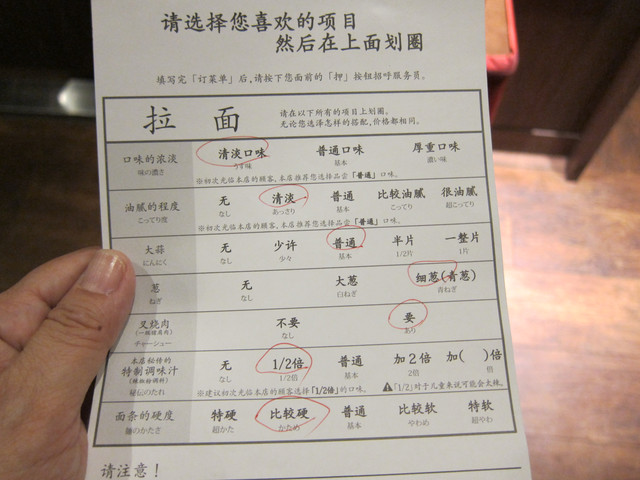 请选择您喜欢的项目
然后在上面划圈
填写完「订菜单」后,请按下您面前的「押」按钮招呼服务员。
拉 面
请在以下所有的项目上划圈。
无论您选泽怎样的搭配,价格都相同。
口味的浓淡 清淡口味 普通口味 厚重口味
味の濃さ うす味 基本 濃い味
※初次光临本店的顾客、本店推荐您选择品尝「普通」口味。
油腻的程度 无 清淡 普通 比较油腻 很油腻
こってり度 なし あっさり 基本 こってり 超こってり
※初次光临本店的顾客、本店推荐您选择品尝「普通」口味。
大蒜 无 少许 普通 半片 一整片
にんにく なし 少々 基本 1/2片 1片
葱 无 大葱 细葱(青葱)
ねぎ なし 白ねぎ 青ねぎ
叉烧肉 不要 要
チャーシュー なし あり
本店秘传的
特制调味汁 无 1/2倍 普通 加2倍 加( )倍
秘伝のたれ なし 1/2倍 基本 2倍 倍
※建议初次光临本店的顾客选择「1/2倍」的口味。 「1/2」对于儿童来说可能会太辣。
面条的硬度 特硬 比较硬 普通 比较软 特软
麺のかたさ 超かた かため 基本 やわめ 超やわ
请注意!